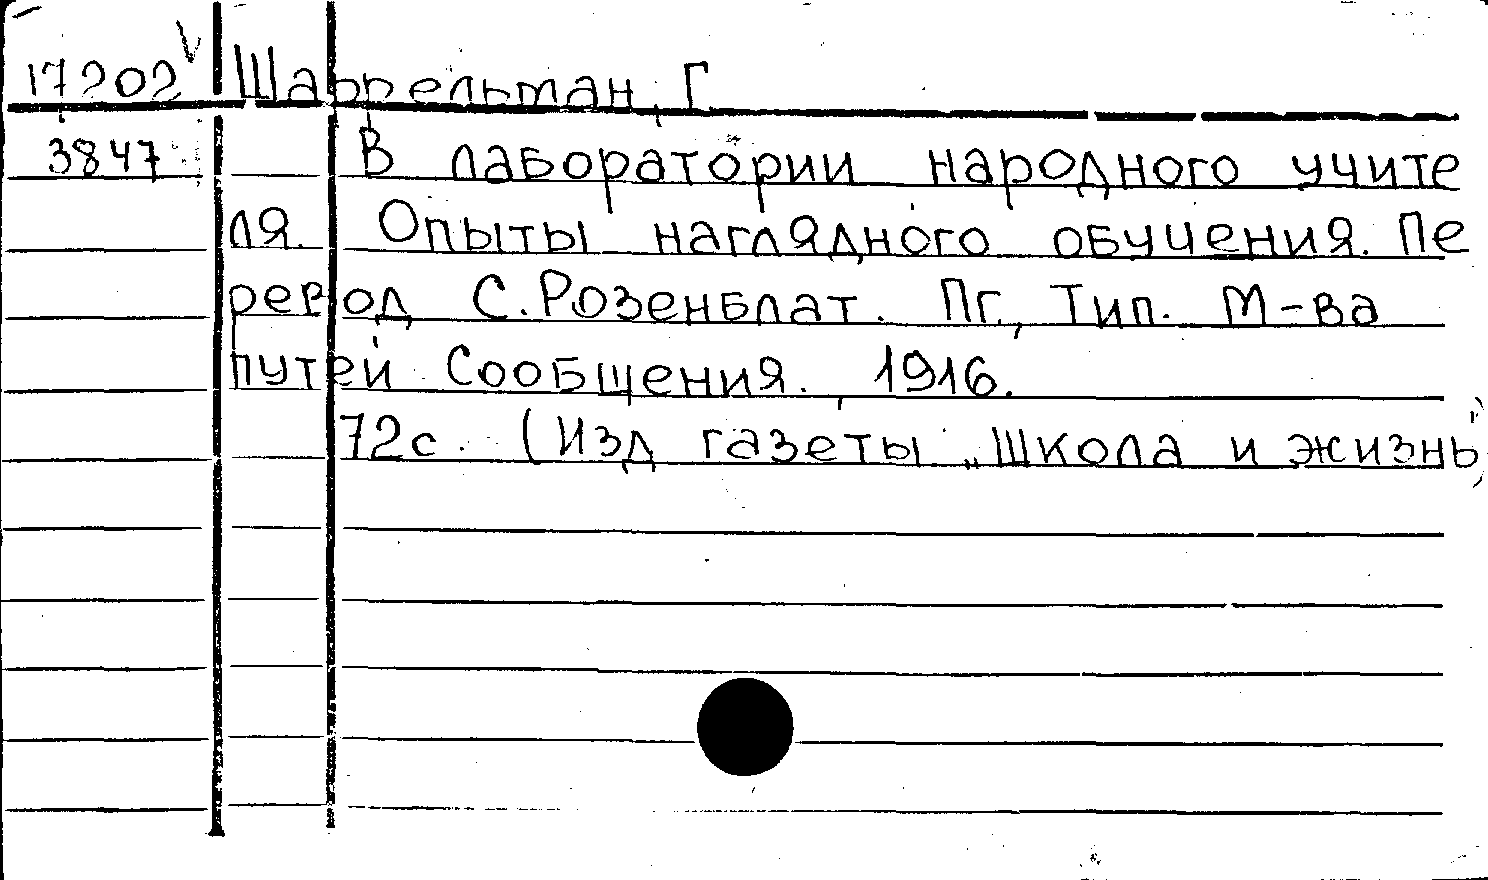 17202 Шаррельман, Г.
3847 В лаборатории народного учите
ля. Опыты наглядного обучения. Пе
ревод С. Розенблат. Пг., Тип. М-ва
путей Сообщения. 1916.
72с. (Изд газеты „Школа и жизнь")